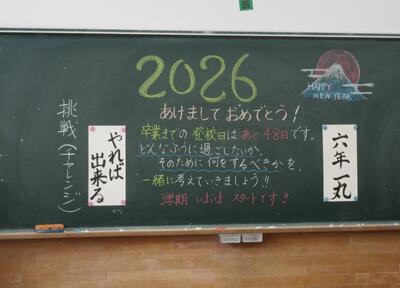 2026
HAPPY
NEW YEAR
あけまして おめでとう!
卒業までの 登校日は あと 48日です。
どんなふうに過ごしたいか、
そのために 何をするべきか を、
一緒に考えていきましょう!!
3学期 いよいよ スタートです!!
六年一丸
やれば
出来る
挑戦(チャレンジ)